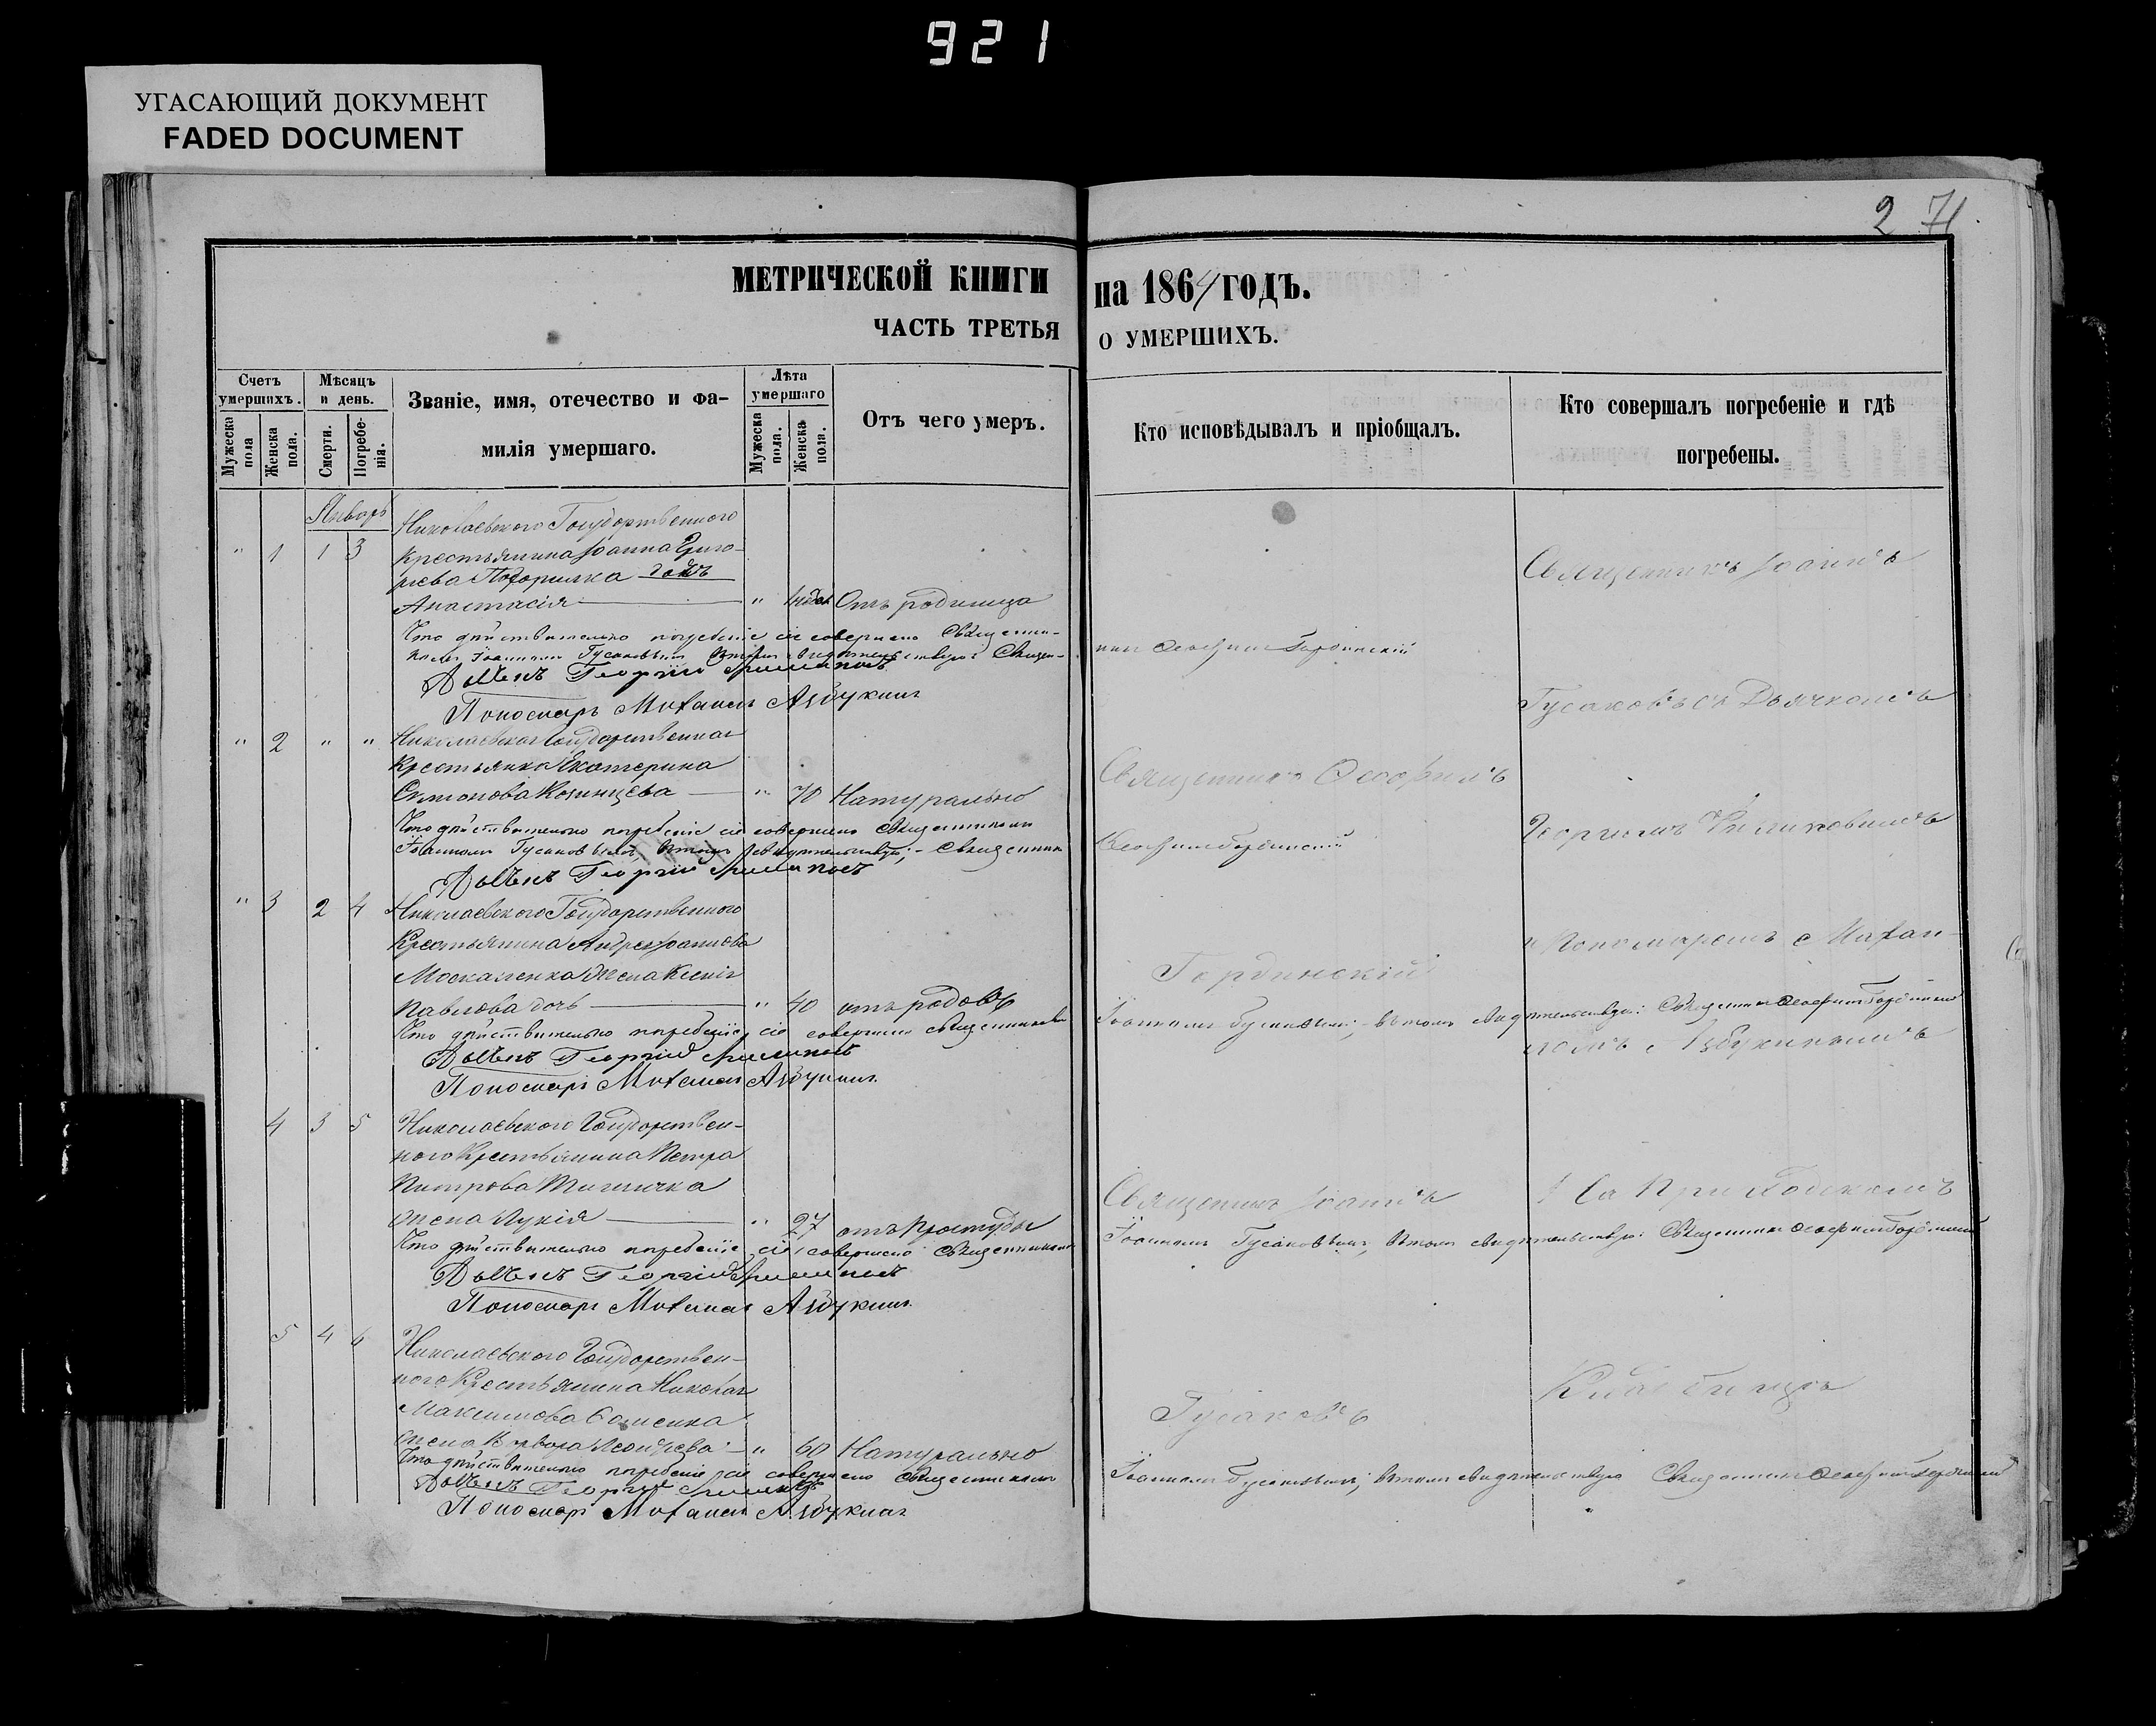 921
УГАСАЮЩИЙ ДОКУМЕНТ
FADED DOCUMENT
2 71
МЕТРИЧЕСКОЙ КНИГИ на 1864 ГОДЪ.
ЧАСТЬ ТРЕТЬЯ О УМЕРШИХЪ.
Счетъ умершихъ.
Мужеска пола
Женска пола.
Мѣсяцъ и день.
Смерти.
Погребенія.
Званіе, имя, отечество и фа-
милія умершаго.
Лѣта умершаго
Мужеска пола.
Женска пола.
Отъ чего умеръ.
Кто исповѣдывалъ и пріобщалъ.
Кто совершалъ погребеніе и гдѣ
погребены.
Январь
Николаевского Государственного
" 1 1 3 крестьянина Іоанна Григо-
рьева
Анастасія " Отъ родимца
Священникъ Іоаннъ
Что дѣйствительно погребеніе сіе совершено Священ-
никомъ Іоанномъ Гусаковымъ въ томъ свидѣтельствую: Священ-
никъ Ѳеофилъ Гординскій
Дьячекъ Георгій
Пономарь Михаилъ Азбукинъ
Гусаковъ съ Дьячкомъ
" 2 " " Николаевская Государственная
Крестьянка Екатерина
" 70 Натурально
Священникъ Ѳеофилъ
Что дѣйствительно погребеніе сіе совершено Священникомъ
Іоанномъ Гусаковымъ, въ томъ свидѣтельствую: Священникъ
Ѳеофилъ Гординскій
Георгіемъ
Дьячекъ Георгій
" 3 2 4 Николаевского Государственного
Крестьянина Андрея Іоаннова
Москаленка жена Ксенія
Павлова дочь " 40 отъ родовъ
Гординскій
и Пономаремъ Михаи-
Что дѣйствительно погребеніе сіе совершено Священникомъ
Іоанномъ Гусаковымъ, въ томъ свидѣтельствую: Священникъ Ѳеофилъ Гординскій
ломъ Азбукинымъ
Дьячекъ Георгій
Пономарь Михаилъ Азбукинъ.
4 3 5 Николаевского Государствен-
ного Крестьянина Петра
Петрова
жена Лукія " 27 отъ простуды
Священникъ Іоаннъ
На Приходскомъ
Что дѣйствительно погребеніе сіе совершено Священникомъ
Іоанномъ Гусаковымъ, въ томъ свидѣтельствую: Священникъ Ѳеофилъ Гординскій
Дьячекъ Георгій
Пономарь Михаилъ Азбукинъ.
5 4 6 Николаевского Государствен-
ного Крестьянина Николая
Максимова
жена " 60 Натурально
Гусаковъ
Кладбищѣ
Что дѣйствительно погребеніе сіе совершено Священникомъ
Іоанномъ Гусаковымъ, въ томъ свидѣтельствую Священникъ Ѳеофилъ Гординскій
Дьячекъ Георгій
Пономарь Михаилъ Азбукинъ